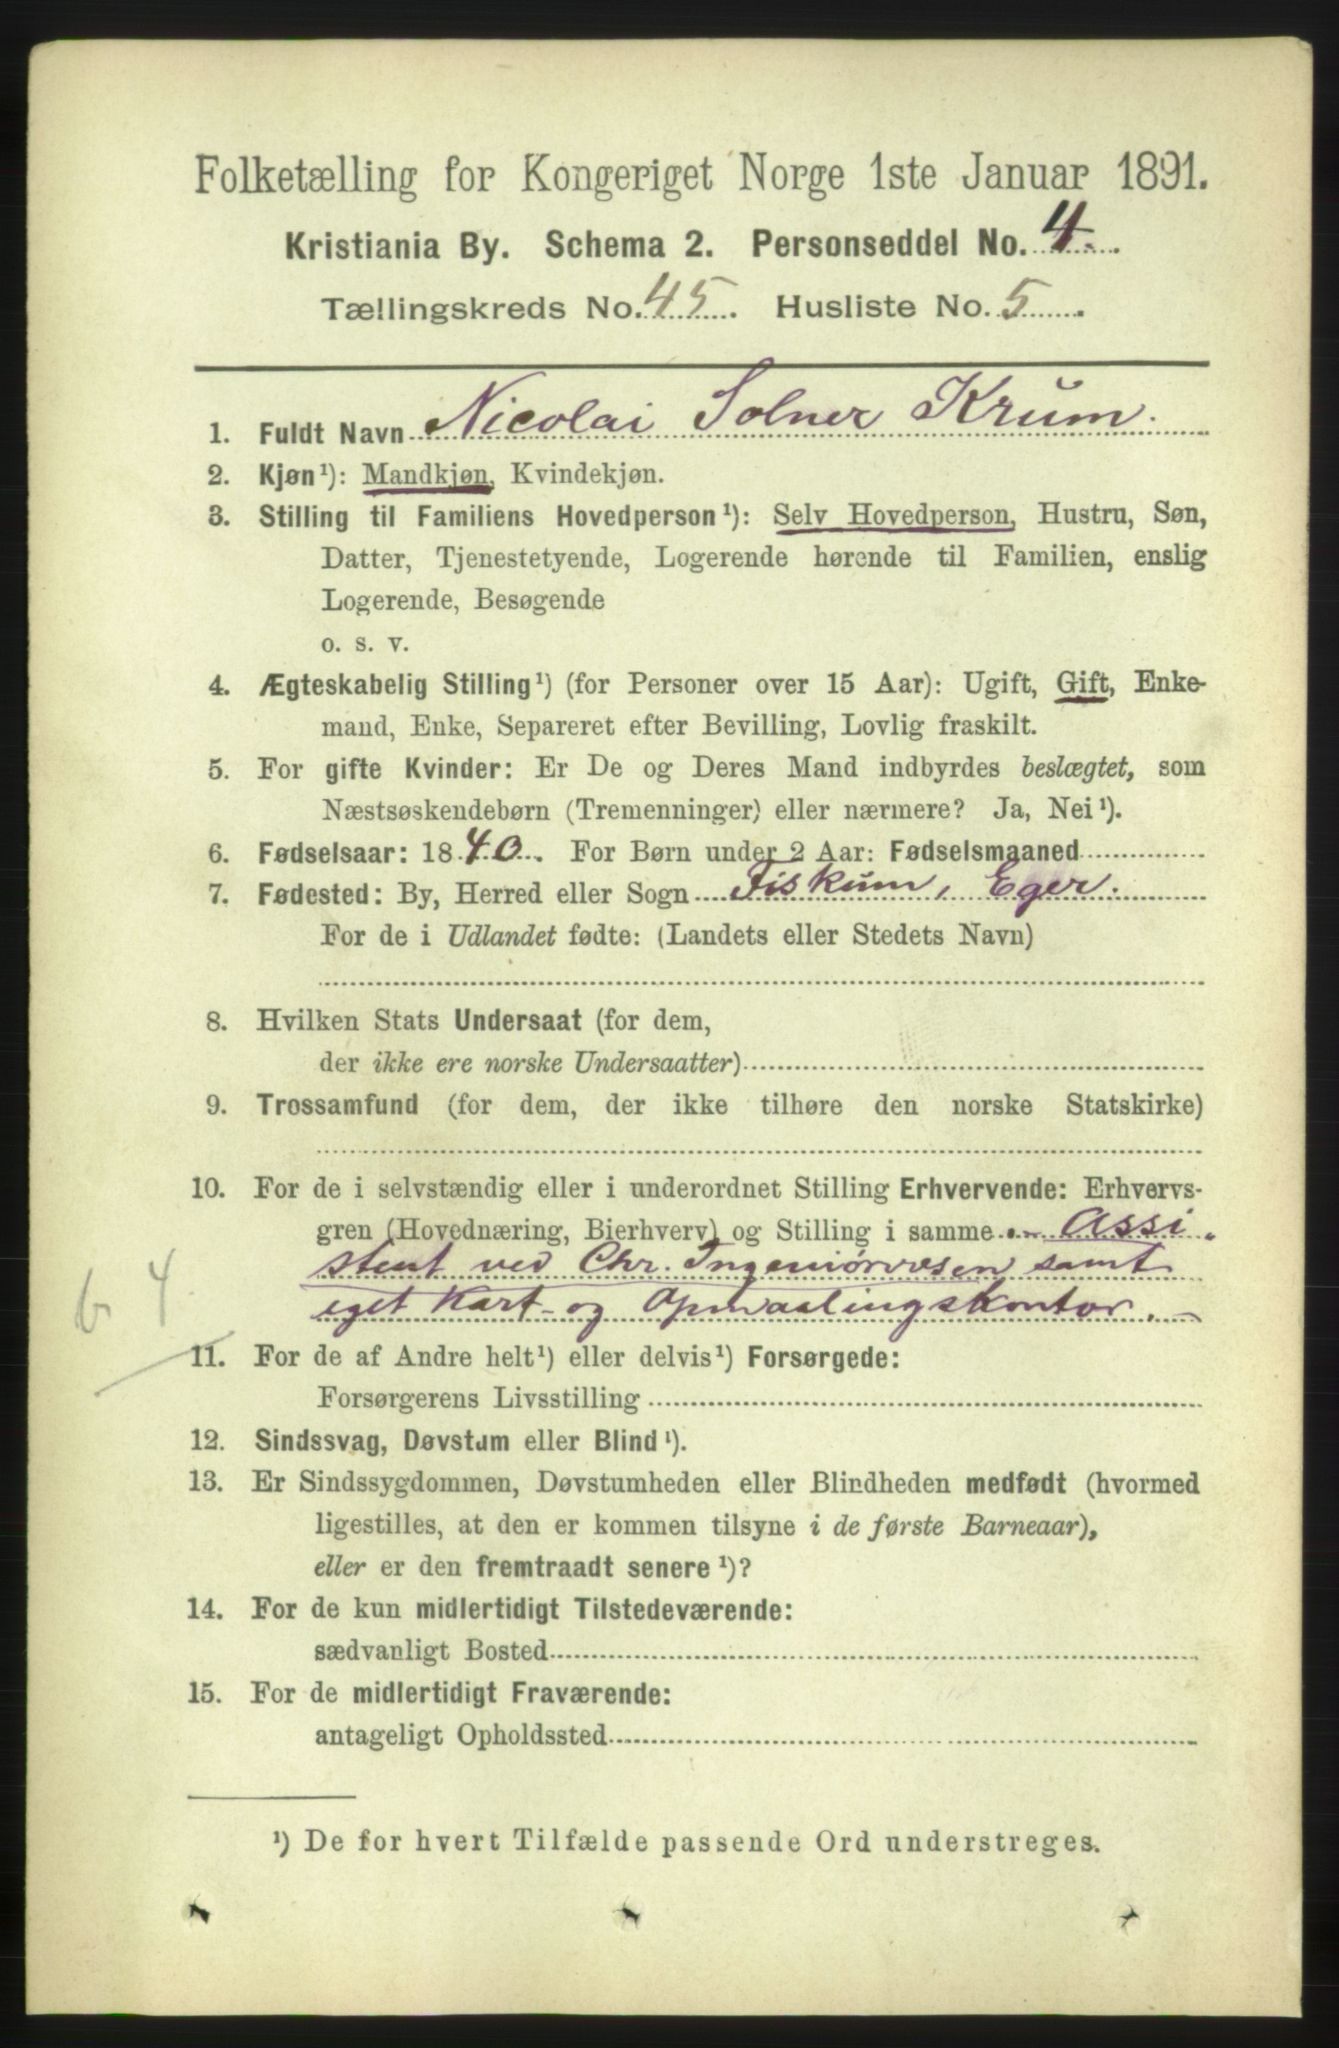 Folketælling for Kongeriget Norge 1ste Januar 1891.
Kristiania By. Schema 2. Personseddel No. 4.
Tællingskreds No. 45. Husliste No. 5.
1. Fuldt Navn Nicolai Solner Krum.
2. Kjøn¹): Mandkjøn, Kvindekjøn.
3. Stilling til Familiens Hovedperson¹): Selv Hovedperson, Hustru, Søn,
Datter, Tjenestetyende, Logerende hørende til Familien, enslig
Logerende, Besøgende
o. s. v.
4. Ægteskabelig Stilling¹) (for Personer over 15 Aar): Ugift, Gift, Enke-
mand, Enke, Separeret efter Bevilling, Lovlig fraskilt.
5. For gifte Kvinder: Er De og Deres Mand indbyrdes beslægtet, som
Næstsøskendebørn (Tremenninger) eller nærmere? Ja, Nei¹).
6. Fødselsaar: 1840. For Børn under 2 Aar: Fødselsmaaned
7. Fødested: By, Herred eller Sogn Fiskum, Eger.
For de i Udlandet fødte: (Landets eller Stedets Navn)
8. Hvilken Stats Undersaat (for dem,
der ikke ere norske Undersaatter)
9. Trossamfund (for dem, der ikke tilhøre den norske Statskirke)
10. For de i selvstændig eller i underordnet Stilling Erhvervende: Erhvervs-
gren (Hovednæring, Bierhverv) og Stilling i samme Assi
stent ved Chr. Ingeniørvæsen samt
eget Kart- og Opmaalingskontor.
6 4
11. For de af Andre helt¹) eller delvis¹) Forsørgede:
Forsørgerens Livsstilling
12. Sindssvag, Døvstum eller Blind¹).
13. Er Sindssygdommen, Døvstumheden eller Blindheden medfødt (hvormed
ligestilles, at den er kommen tilsyne i de første Barneaar),
eller er den fremtraadt senere¹)?
14. For de kun midlertidigt Tilstedeværende:
sædvanligt Bosted
15. For de midlertidigt Fraværende:
antageligt Opholdssted
¹) De for hvert Tilfælde passende Ord understreges.